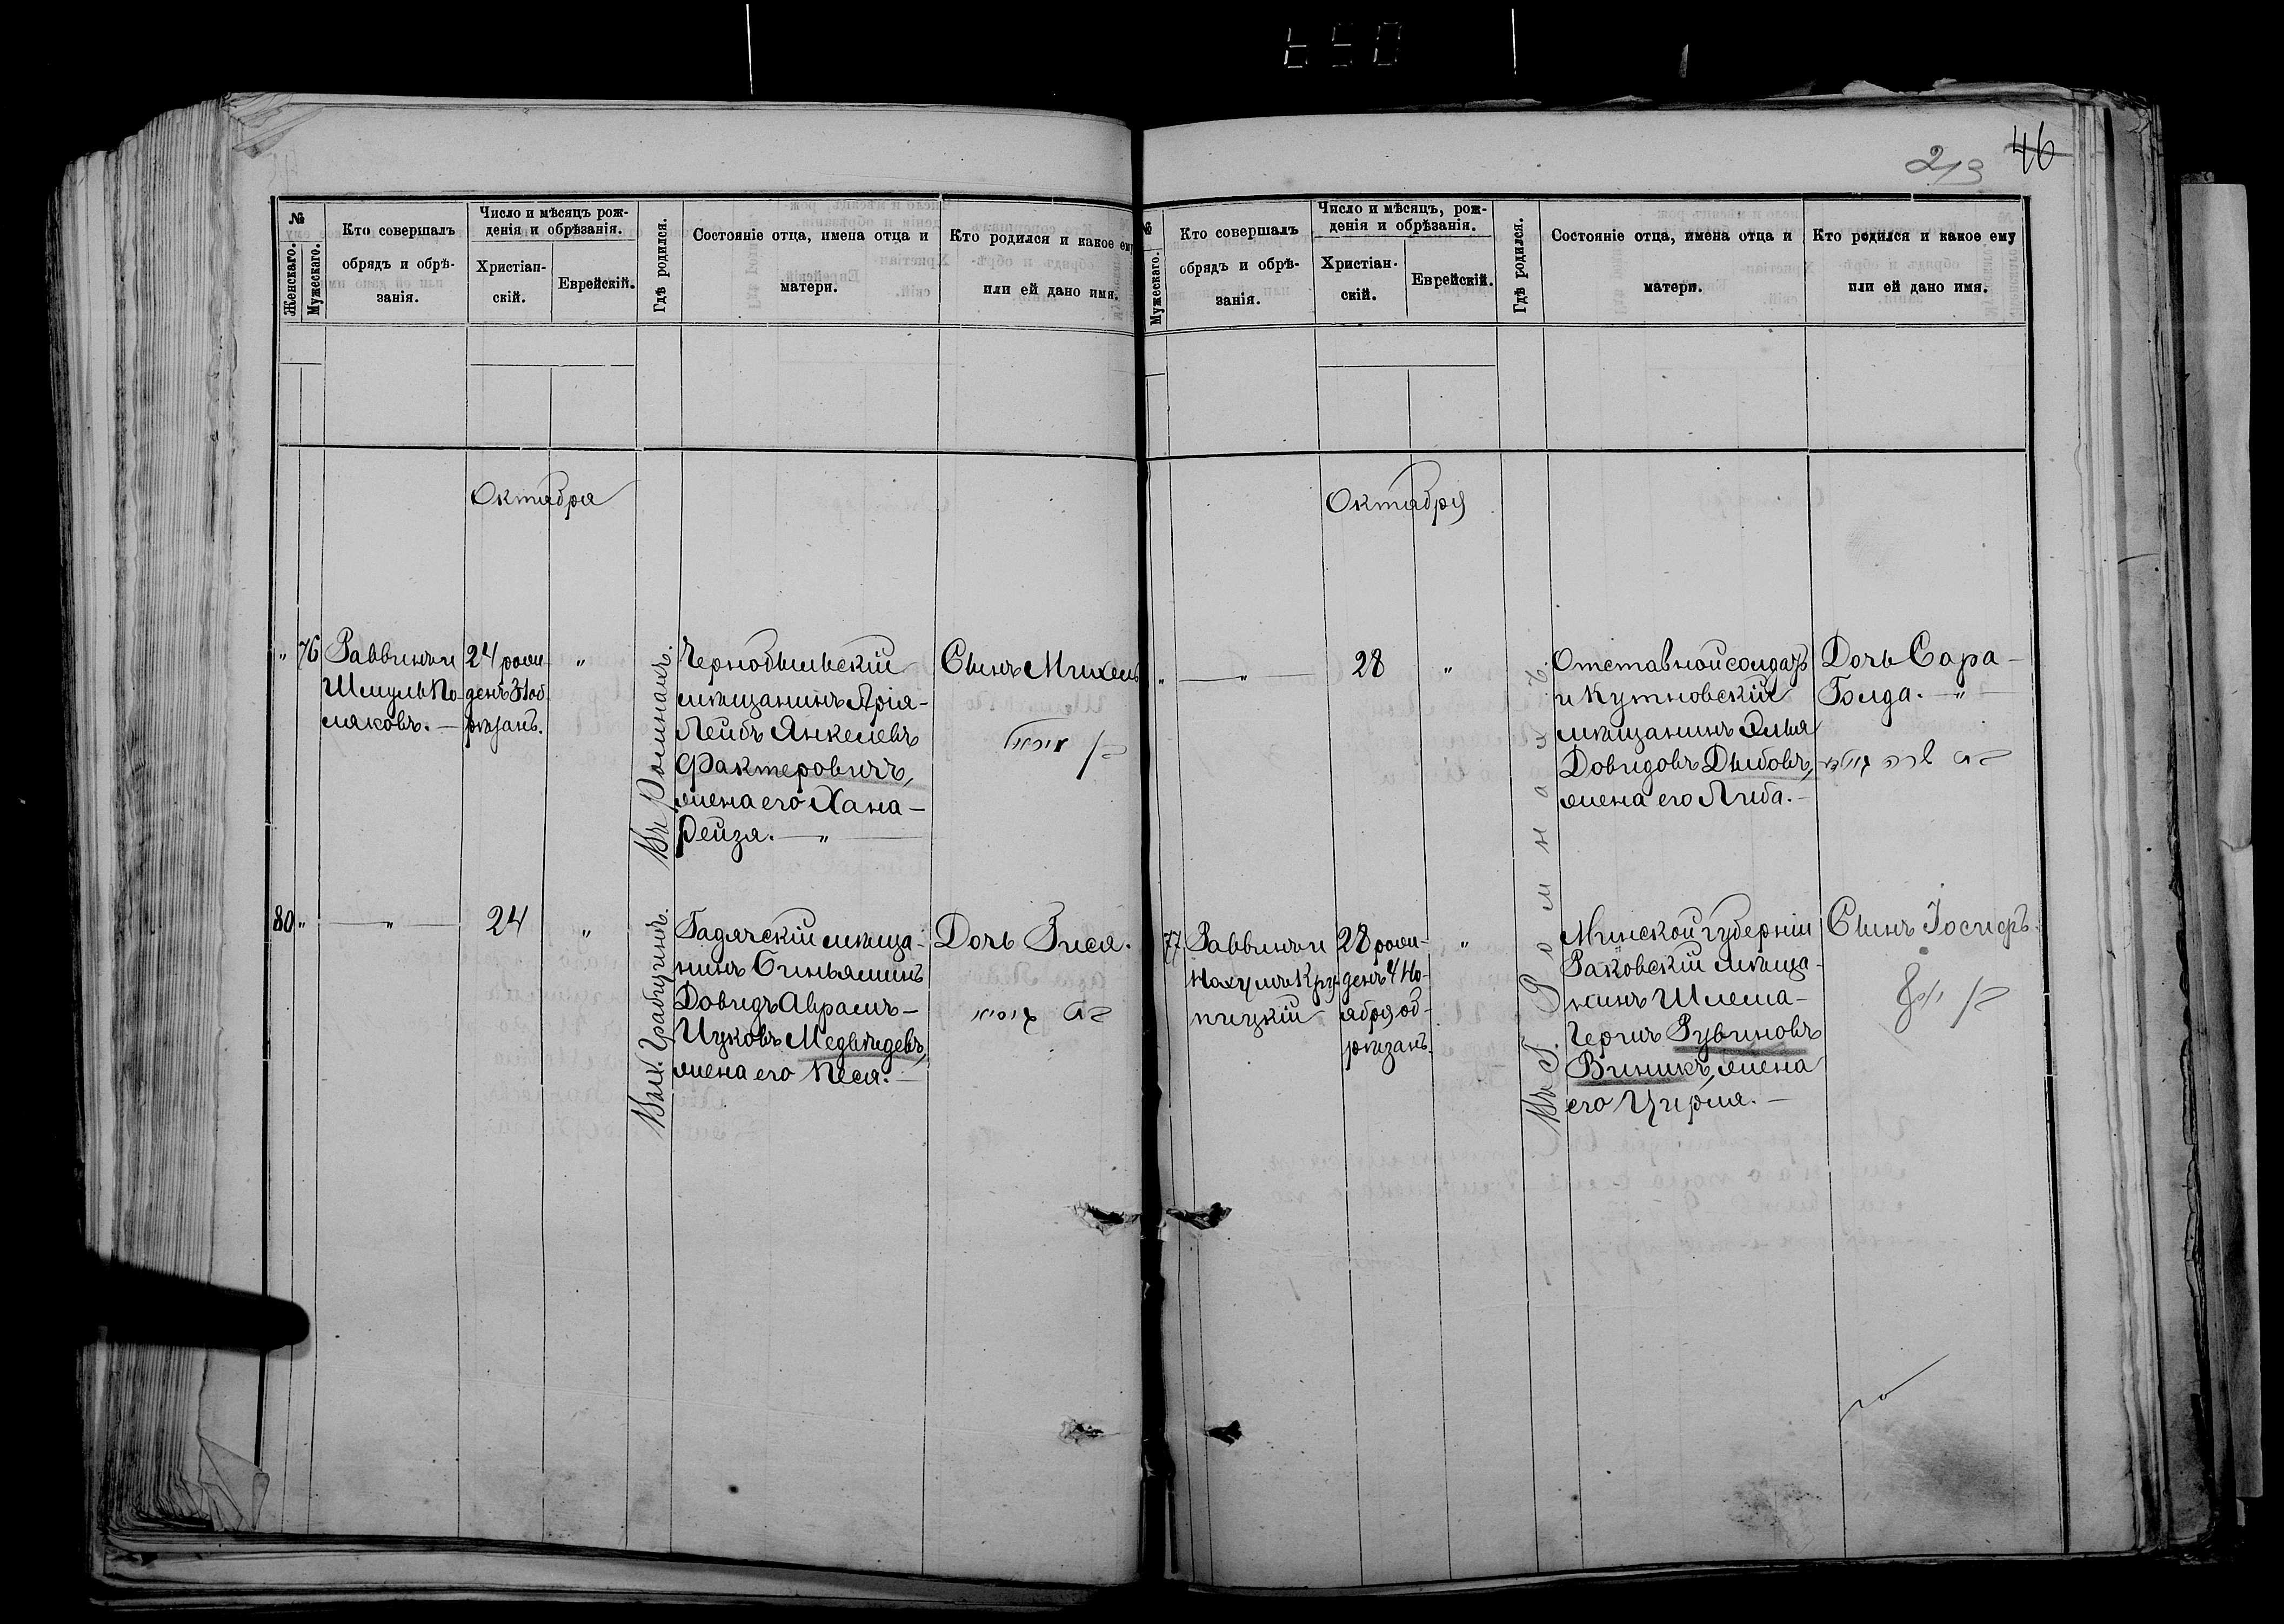 650
213 46
№
Женскаго.
Мужескаго.
Кто совершалъ
обрядъ и обрѣ-
занія.
Число и мѣсяцъ рож-
денія и обрѣзанія.
Христіан-
скій.
Еврейскій.
Гдѣ родился.
Состояніе отца, имена отца и
матери.
Кто родился и какое ему
или ей дано имя.
Октября
" 76
Раввинъ и
Шмуль По
ляковъ. —
24 рож-
денъ 31 об
рѣзанъ.
"
Въ Ромнахъ.
Чернобыльскій
мѣщанинъ Арія-
Лейбъ Янкелевъ
Факторовичъ,
жена его Хана-
Рейзя. — " —
Сынъ Михель
בן מיכל
80 "
— " —
24
"
Гадячскій мѣща-
нинъ Биньяминъ
Довидъ Аврамъ-
Ицковъ Медвѣдевъ,
жена его Песя. —
Дочь Гися.
בת גיסיא
№
Мужескаго.
Кто совершалъ
обрядъ и обрѣ-
занія.
Число и мѣсяцъ, рож-
денія и обрѣзанія.
Христіан-
скій.
Еврейскій.
Гдѣ родился.
Состояніе отца, имена отца и
матери.
Кто родился и какое ему
или ей дано имя.
Октября
"
— " —
28
"
Въ г. Ромнахъ.
Отставной солдатъ
и Кутновскій
мѣщанинъ Элья
Довидовъ Дыбовъ,
жена его Либа. —
Дочь Сара-
Голда. — " —
בת שרה גולדא
77
Раввинъ и
Нохумъ Кру-
пицкій
28 рож-
денъ 4 Но-
ября об-
рѣзанъ.
"
Минской губерніи
Раковскій мѣща-
нинъ Шлема-
Герцъ Рувиновъ
Виникъ, жена
его Цирля. —
Сынъ Іосифъ.
בן יוסף